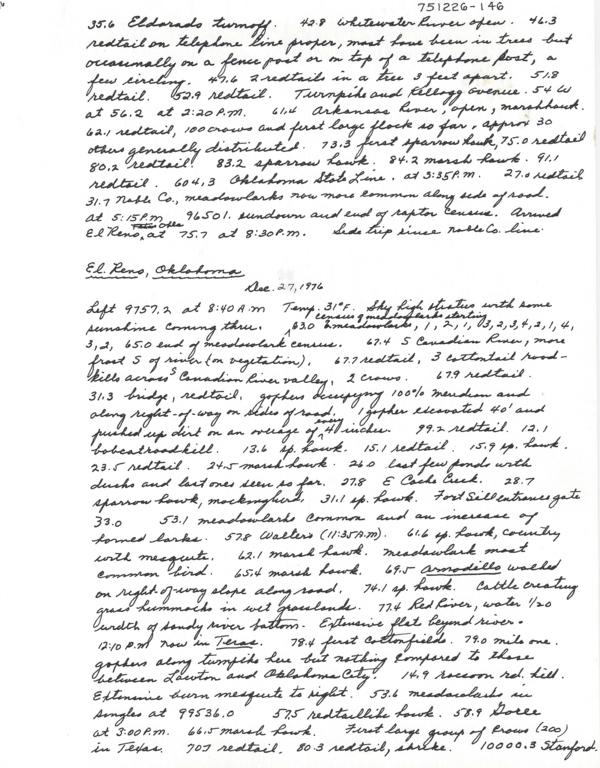 751226-146
35.6 Eldorado turnoff. 42.8 Whitewater River open. 46.3
redtail on telephone line proper, most have been in trees but
occasionally on a fence post or on top of a telephone post, a
few circling. 47.6 2 redtails in a tree 3 feet apart. 51.8
redtail. 52.9 redtail. Turnpike and Kellogg avenue. 54 W
at 56.2 at 2:20 P.M. 61.4 Arkansas River, open, marshhawk.
62.1 redtail, 100 crows and first large flock so far, approx 30
others generally distributed. 73.3 first sparrow hawk, 75.0 redtail
80.2 redtail. 83.2 sparrow hawk. 84.2 marsh hawk. 91.1
redtail. 604.3 Oklahoma State Line. at 3:35 P.M. 27.0 redtail
31.7 Noble Co., meadowlarks now more common along side of road.
at 5:15 P.M. 9650 1. sundown and end of raptor census. Arrived
El Reno, Okla at 75.7 at 8:30 P.M. Side trip since Noble Co. line.
El Reno, Oklahoma
Dec. 27, 1976
Left 9757.2 at 8:40 A.M Temp. 31°F. Sky high stratus with some
sunshine coming thru. census of meadowlarks starting 63.0 2 meadowlarks, 1, 2, 1, 3, 2, 3, 4, 2, 1, 4,
3, 2, 65.0 end of meadowlark census. 67.4 S Canadian River, more
frost S of river (on vegetation), 67.7 redtail, 3 cottontail road-
kills across S Canadian River valley, 2 crows. 67.9 redtail.
31.3 bridge, redtail, gophers occupying 100% meridian and
along right-of-way on sides of road. 1 gopher excavated 40' and
pushed up dirt on an average of every 4 inches. 99.2 redtail. 12.1
bobcat roadkill. 13.6 sp. hawk. 15.1 redtail. 15.9 sp. hawk.
23.5 redtail. 24.5 marsh hawk. 26.0 last few ponds with
ducks and last ones seen so far. 27.8 E Cache Creek. 28.7
sparrow hawk, mockingbird, 31.1 sp. hawk. Fort Sill entrance gate
33.0 53.1 meadowlarks common and an increase of
horned larks. 57.8 Walters (11:35 A.M). 61.6 sp. hawk, country
with mesquite. 62.1 marsh hawk. meadowlark most
common bird. 65.4 marsh hawk. 69.5 Armodillo walked
on right-of-way slope along road. 74.1 sp. hawk. Cattle creating
grass hummocks in wet grasslands. 77.4 Red River, water 1/20
width of sandy river bottom. Extensive flat beyond river.
12:10 P.M now in Texas. 78.4 first cottonfields. 79.0 mile one.
gophers along turnpike here but nothing compared to those
between Lawton and Oklahoma City. 14.9 racoon rd. kill.
Extensive burn mesquite to right. 53.6 meadowlarks in
singles at 99536.0 57.5 redtaillike hawk. 58.9 Goree
at 3:00 P.M. 66.5 marsh hawk. First large group of crows (200)
in Texas. 70.7 redtail. 80.3 redtail, shrike. 10000.3 Stanford.